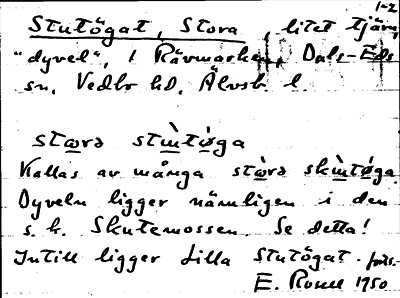 1-2
Stutögat, Stora, litet tjärn,
"dyvel", i Rävmarken, Dals-Eds
sn, Vedbo hd, Älvsb l.
stωrə stm̀tǿga
Kallas av många stωrə skm̀tǿga.
Dyveln ligger nämligen i den
s. k. Skutemossen. Se detta!
Intill ligger Lilla Stutögat.
E. 1950